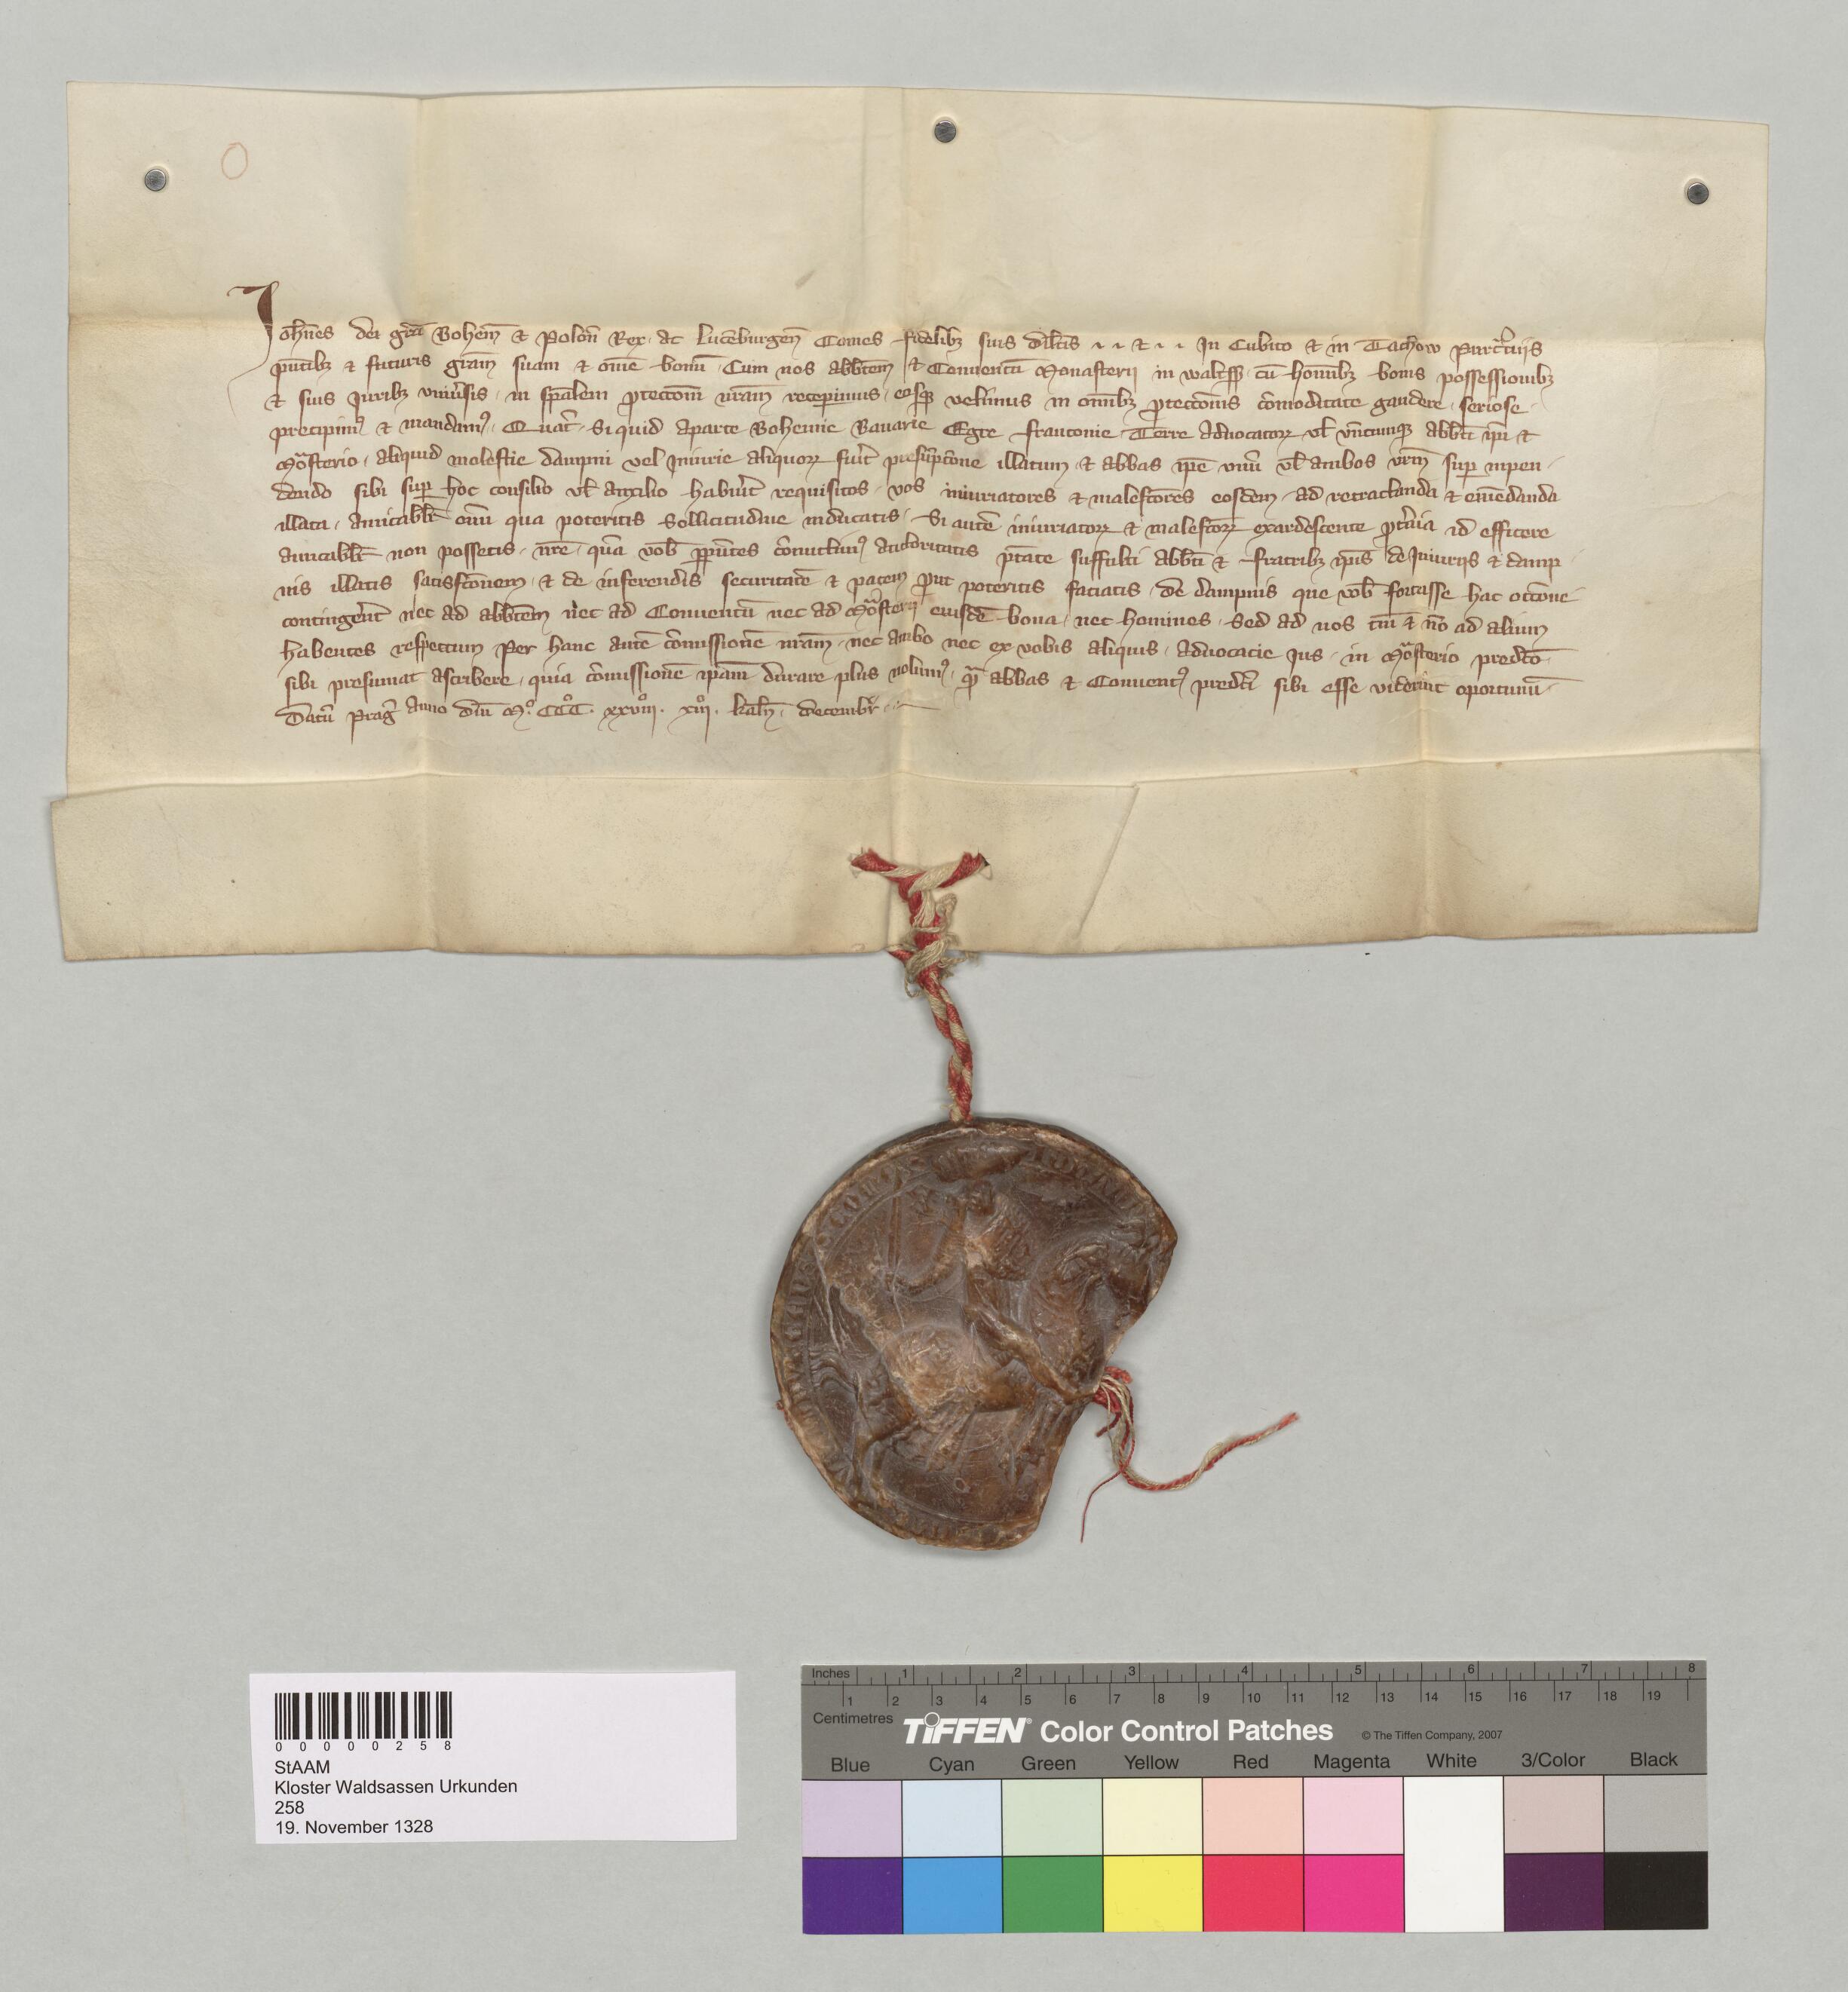 Joh̅nes dei gr̅a Bohem̅ & Polon̅ Rex. ac Luce̅burgen̅ Comes fidelibꝫ suis dil̅cis .. & .. In Cubito & in Tachow Purcͬuijs
pn̅tibꝫ & futuris grãm suam & om̅e bonu̅. Cum nos abb̅tem & Conuentu̅ Monasterij in walts̅s̅. cu̅ homi̅bꝫ bonis possessionibꝫ
& suis Juribꝫ vniu̅sis. in sp̅alem ꝓtecco̅m nr̅am recepimus. eosqꝫ velimus in om̅ibꝫ ꝓtecco̅nis co̅moditate gaudere. seriose
precipimꝰ & mandamꝰ. Quat̅. Si quid aparte Bohemie Bauarie Egre franconie. Terre aduocatoꝝ vl̅ vn̅cunqꝫ abb̅ti ip̅i &
Mo̅sterio. aliquid molestie dampni vel Iniurie aliquoꝝ fu̅it presu̅pco̅ne illatum. & abbas ip̅e vnu̅ vl̅ ambos vr̅m sup̲ inpen-
dendo sibi sup̲ hoc consilio vl̅ auxilio habu̅it requisitos. vos iniuriatores & malefc̅ores eosdem. ad retractanda & eme̅danda
illata. amicabil̅r om̅i qua poteritis sollicitudine inducatis. Si aute̅ iniuriatoꝝ & malefc̅oꝝ exardescente ꝓt̅uia id efficere
amicabil̅r non possetis. nr̅e. qu̅a vob̅ pp̅n̅tes co̅mictimꝰ auctoritatis pt̅ate suffulti abb̅ti & fratribꝫ ip̅is de Iniurijs & damp-
nis illatis satisfco̅nem. & de inferendis securitate̅ & pacem ꝓut poteritis faciatis. de dampnis que vob̅ fortasse hac occo̅ne
continger̅t nec ad abb̅tem nec ad Conuentu̅ nec ad Mo̅sterij eiusde̅ bona. nec homines. Sed ad nos tm̅ & no̅ ad alium
habentes respectum. Per hanc aute̅ co̅missione̅ nr̅am. nec ambo nec ex vobis aliquis. aduocacie Ius. in Mo̅sterio predc̅o
sibi presumat ascribere. quia co̅missione̅ ip̅am durare plus nolumꝰ. qͣ̅ abbas & Conuentꝰ predc̅i sibi esse viderint oportunu̅.
Datu̅ Prag̅ Anno dn̅i Mͦ. CCͦC. xxviijͦ. xiijͦ. kal̅n. decembr̅.
0 0 0 0 0 2 5 8
StAAM
Kloster Waldsassen Urkunden
258
19. November 1328
Inches 1 2 3 4 5 6 7 8
1 2 3 4 5 6 7 8 9 10 11 12 13 14 15 16 17 18 19
Centimetres
TIFFEN® Color Control Patches © The Tiffen Company, 2007
Blue Cyan Green Yellow Red Magenta White 3/Color Black